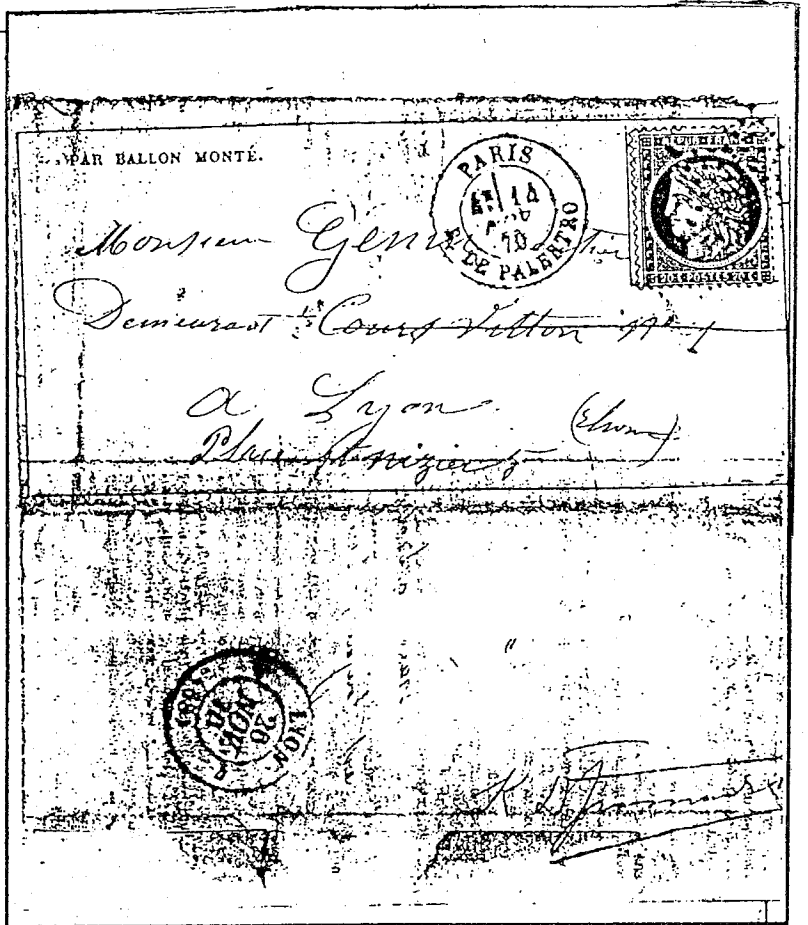 PAR BALLON MONTÉ.
PARIS
4E 14
NOV
70
R. DE PALESTRO
Monsieur
Demeurant Cours Vitton No 1
a Lyon (Rhone)
Place St nizier 5
LYON
20
NOV
70